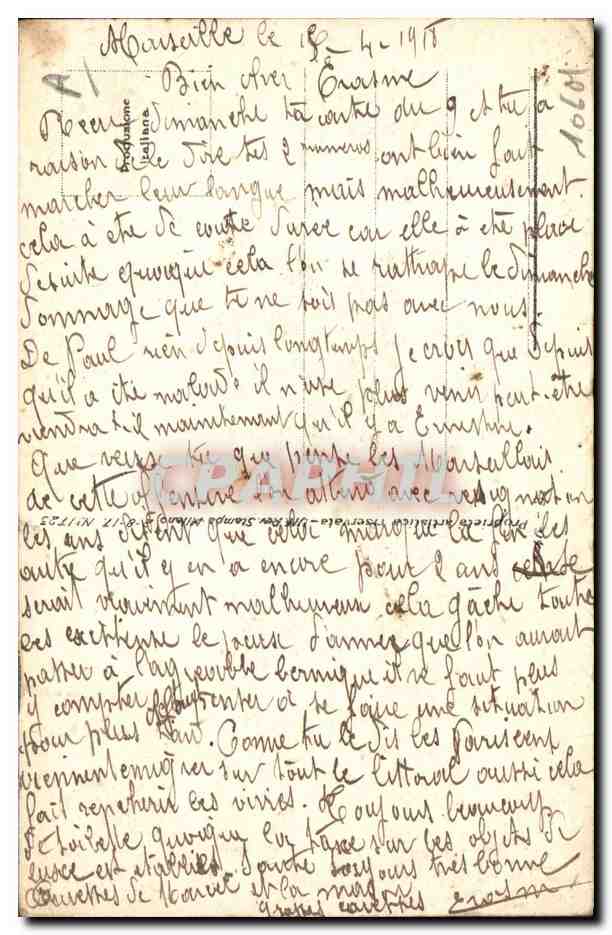 Marseille le 15-4-1918
A
Bien cher Erasme
10601
Produzione
Italiana
Reçu dimanche ta carte du 9 et tu a
raison de dire tes 2 numeros ont bien fait
marcher leur langue mais malheureusement.
cela à été de courte duree car elle à été place
desuite quoique cela l'on se rattrape le dimanche
Dommage que tu ne sois pas avec nous.
De Paul rien depuis longtemps je crois que depuis
qu'il a été malade il n'ose plus venir peut-être
viendra t-il maintenant qu'il y a
Que veux tu que pense les Marseillais
de cette offensive on attend avec resignation
Proprietà artistica riservata - Rev. Stampa Milano 8-17 N° 1723
les uns disent que cela marque la fin les
autre qu'il y en a encore pour 2 ans ce
serait vraiment malheureux cela gâche toute
les de jeunesse que l'on aurait
passer à l'agreable bernique il ne faut plus
y compter faut tenter à se faire une situation
pour plus tard. Comme tu le dis les Parisiens
viennent emigrer sur tout le littoral aussi cela
fait rencherir les vivres. Toujours beaucoup
de toilette quoique la taxe sur les objets de
luxe est établie. Santé toujours très bonne
Caresses de Marcel et la
grosses caresses